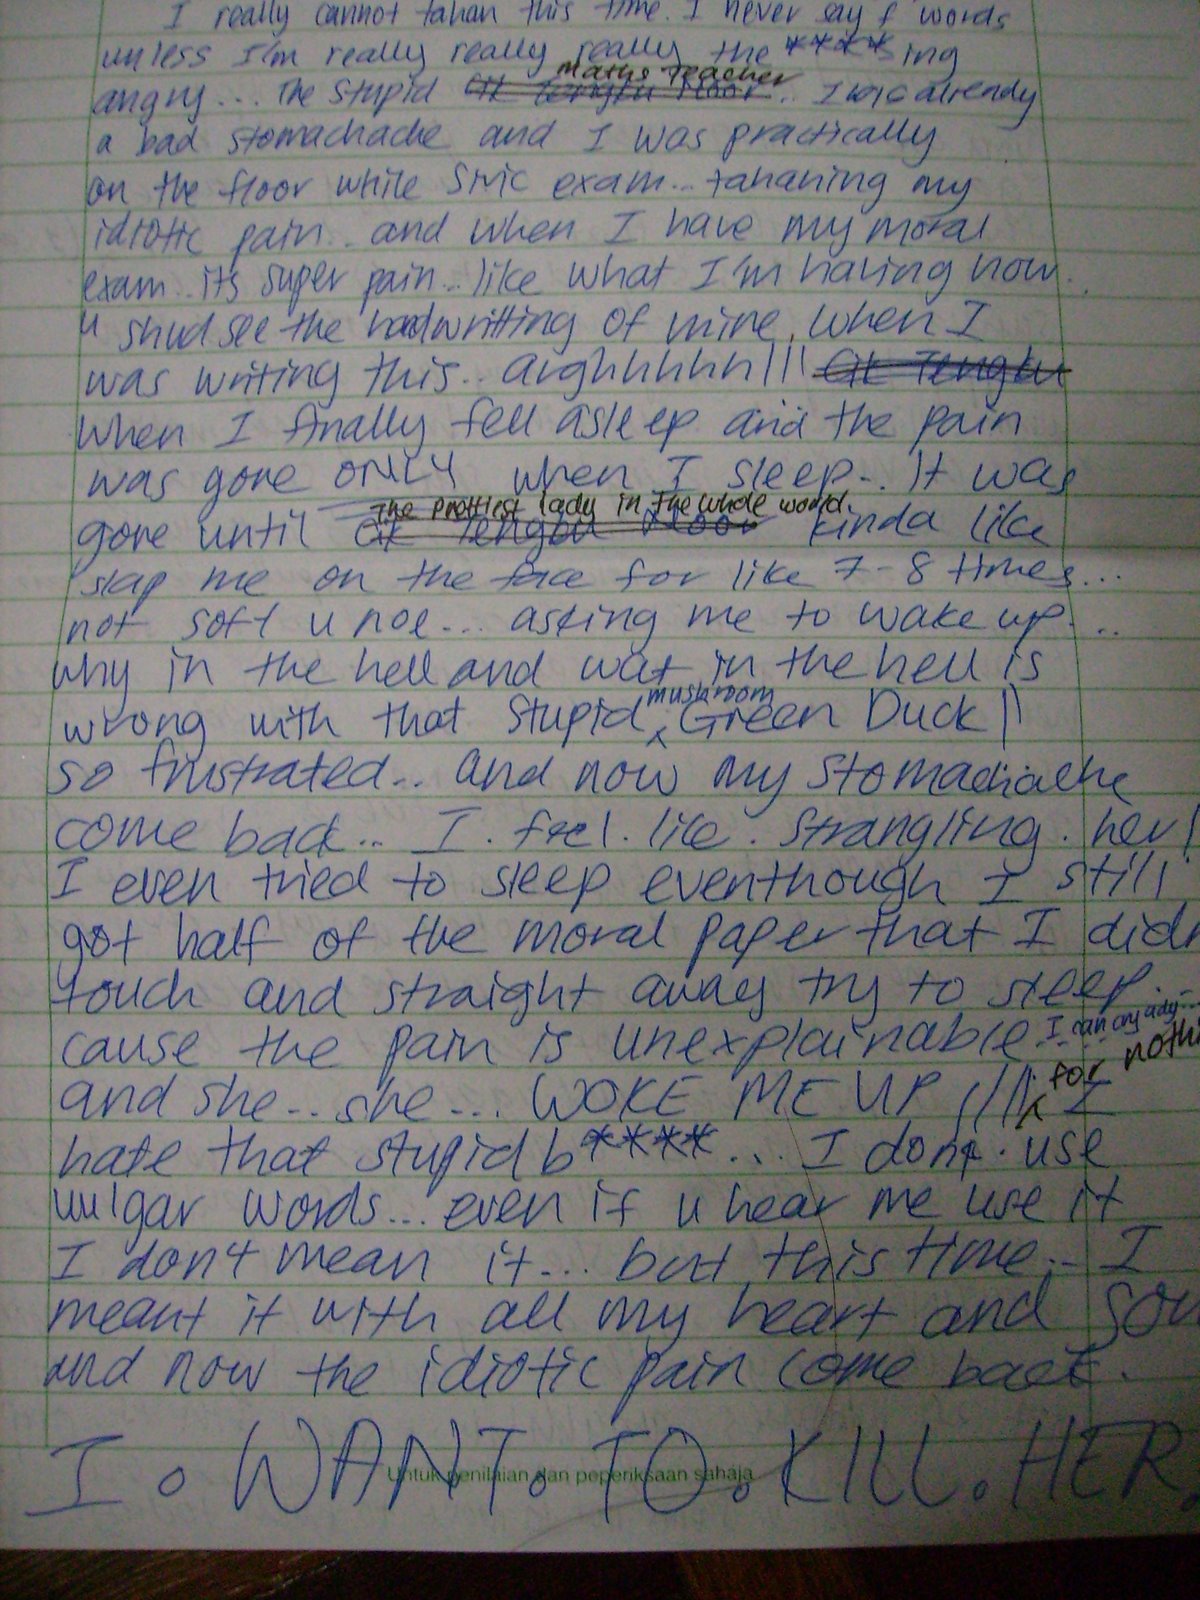 I really cannot tahan this time. I never say f words
unless I'm really really really the ****ing
Maths Teacher
angry... The stupid .. I was already
a bad stomachache and I was practically
on the floor while Sivic exam... tahaning my
idiotic pain.. and when I have my moral
exam.. its super pain.. like what I'm having now..
u shud see the handwritting of mine when I
was writing this.. arghhhhhh!!! Tengku
when I finally fell asleep and the pain
was gone ONLY when I sleep.. It was
The prettiest lady in the whole world
gone until Tengku kinda like
slap me on the face for like 7-8 times...
not soft u noe... asking me to wake up...
why in the hell and wat in the hell is
mushroom
wrong with that stupid ^ Green Duck!!
so frustrated.. and now my stomachache
come back.. I. feel. like. strangling. her!
I even tried to sleep eventhough I still
got half of the moral paper that I didn
touch and straight away try to sleep...
I can cry ady...
cause the pain is unexplainable..
for nothi
and she.. she... WOKE ME UP !!! ^ I
hate that stupid b****... I dont. use
vulgar words... even if u hear me use it
I don't mean it... but this time.. I
meant it with all my heart and sou
and now the idiotic pain come back.
I. WANT. TO. KILL. HER.
Untuk penilaian dan peperiksaan sahaja